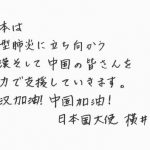 本は
型肺炎に立ち向かう
漢そして中国の皆さんを
力で支援していきます。
汉加油! 中国加油!
日本国大使 横井